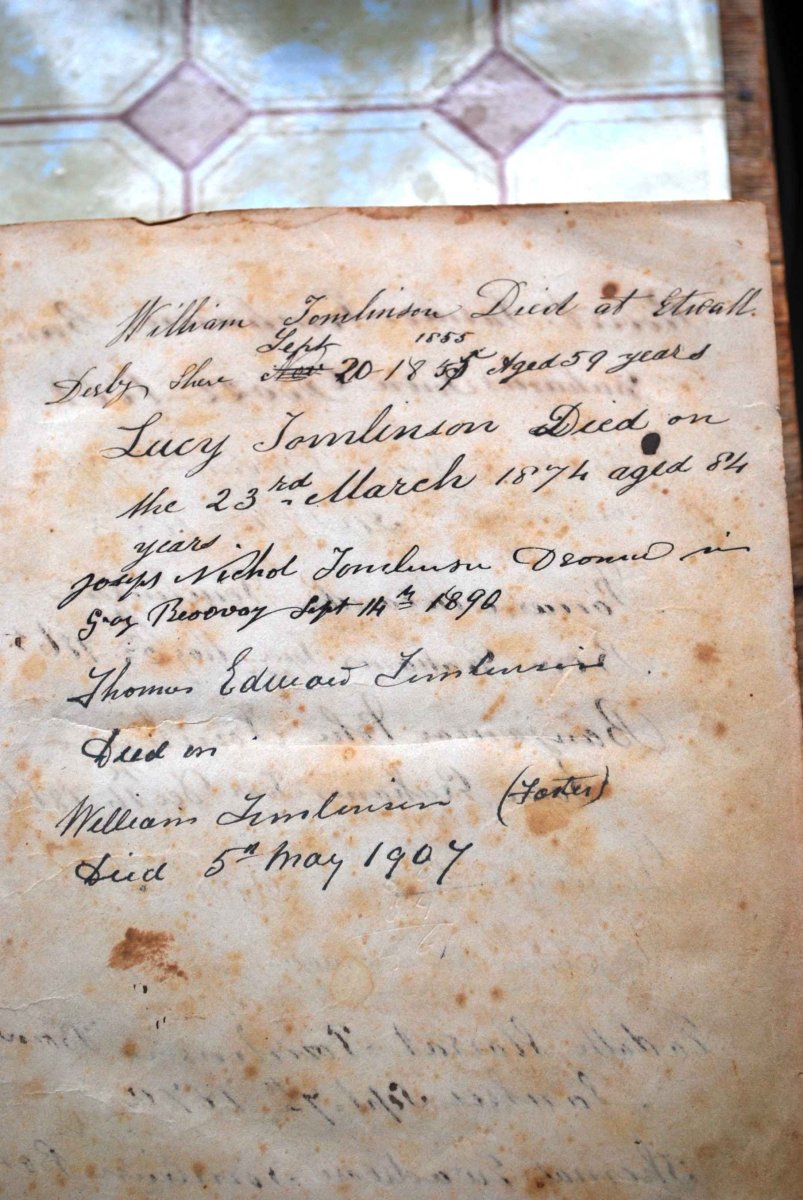 William Tomlinson Died at Etwall.
Derby Shire Sept Nov 20 1855 1855 Aged 59 years
Lucy Tomlinson Died on
the 23rd March 1874 aged 84
years
Joseph Nichol Tomlinson Drowned in
Sept 14th 1890
Thomas Edward Tomlinson
Died on
William Tomlinson (Foster)
Died 5th May 1907